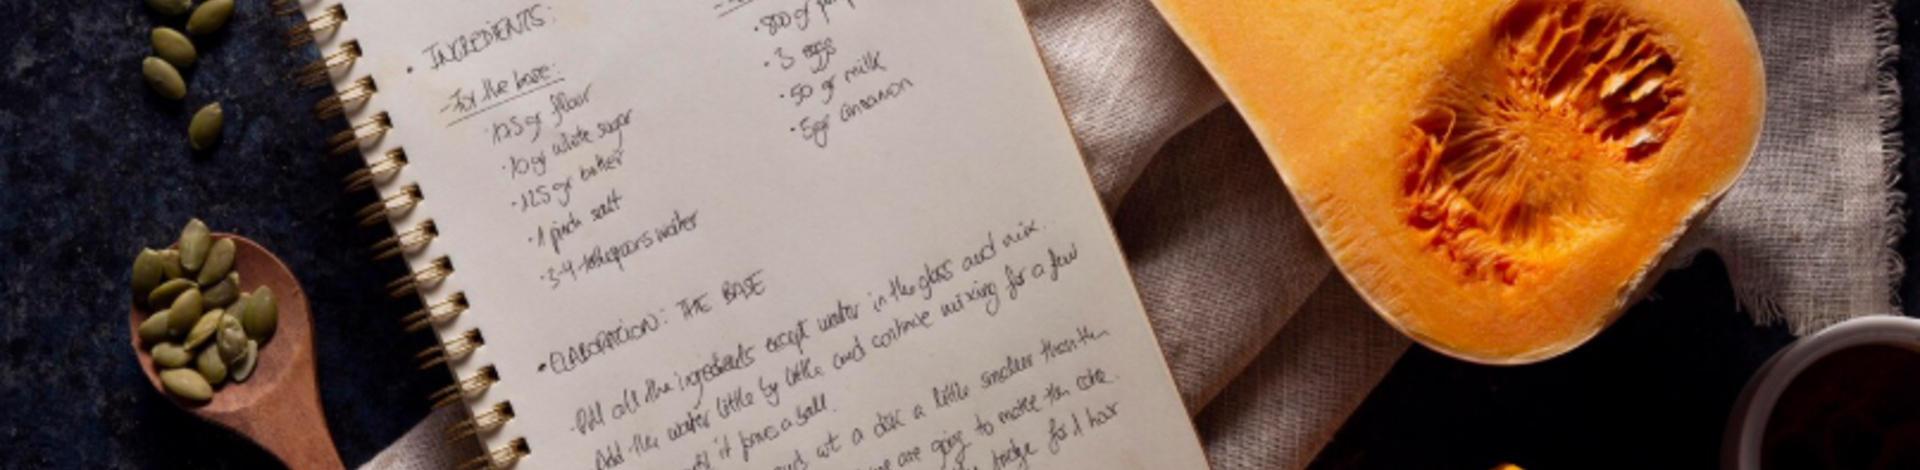 • INGREDIENTS:
- For the base:
· 125 gr flour
· 10 gr white sugar
· 125 gr butter
· 1 pinch salt
· 3-4 water
· 800 gr
· 3 eggs
· 50 gr milk
· 5gr cinnamon
• ELABORATION: THE BASE
Add all the ingredients except water in the glass and mix.
Add the water little by little and continue mixing for a few
it forms a ball.
a disc a little smaller than the
are going to make the cake.
fridge for 1 hour